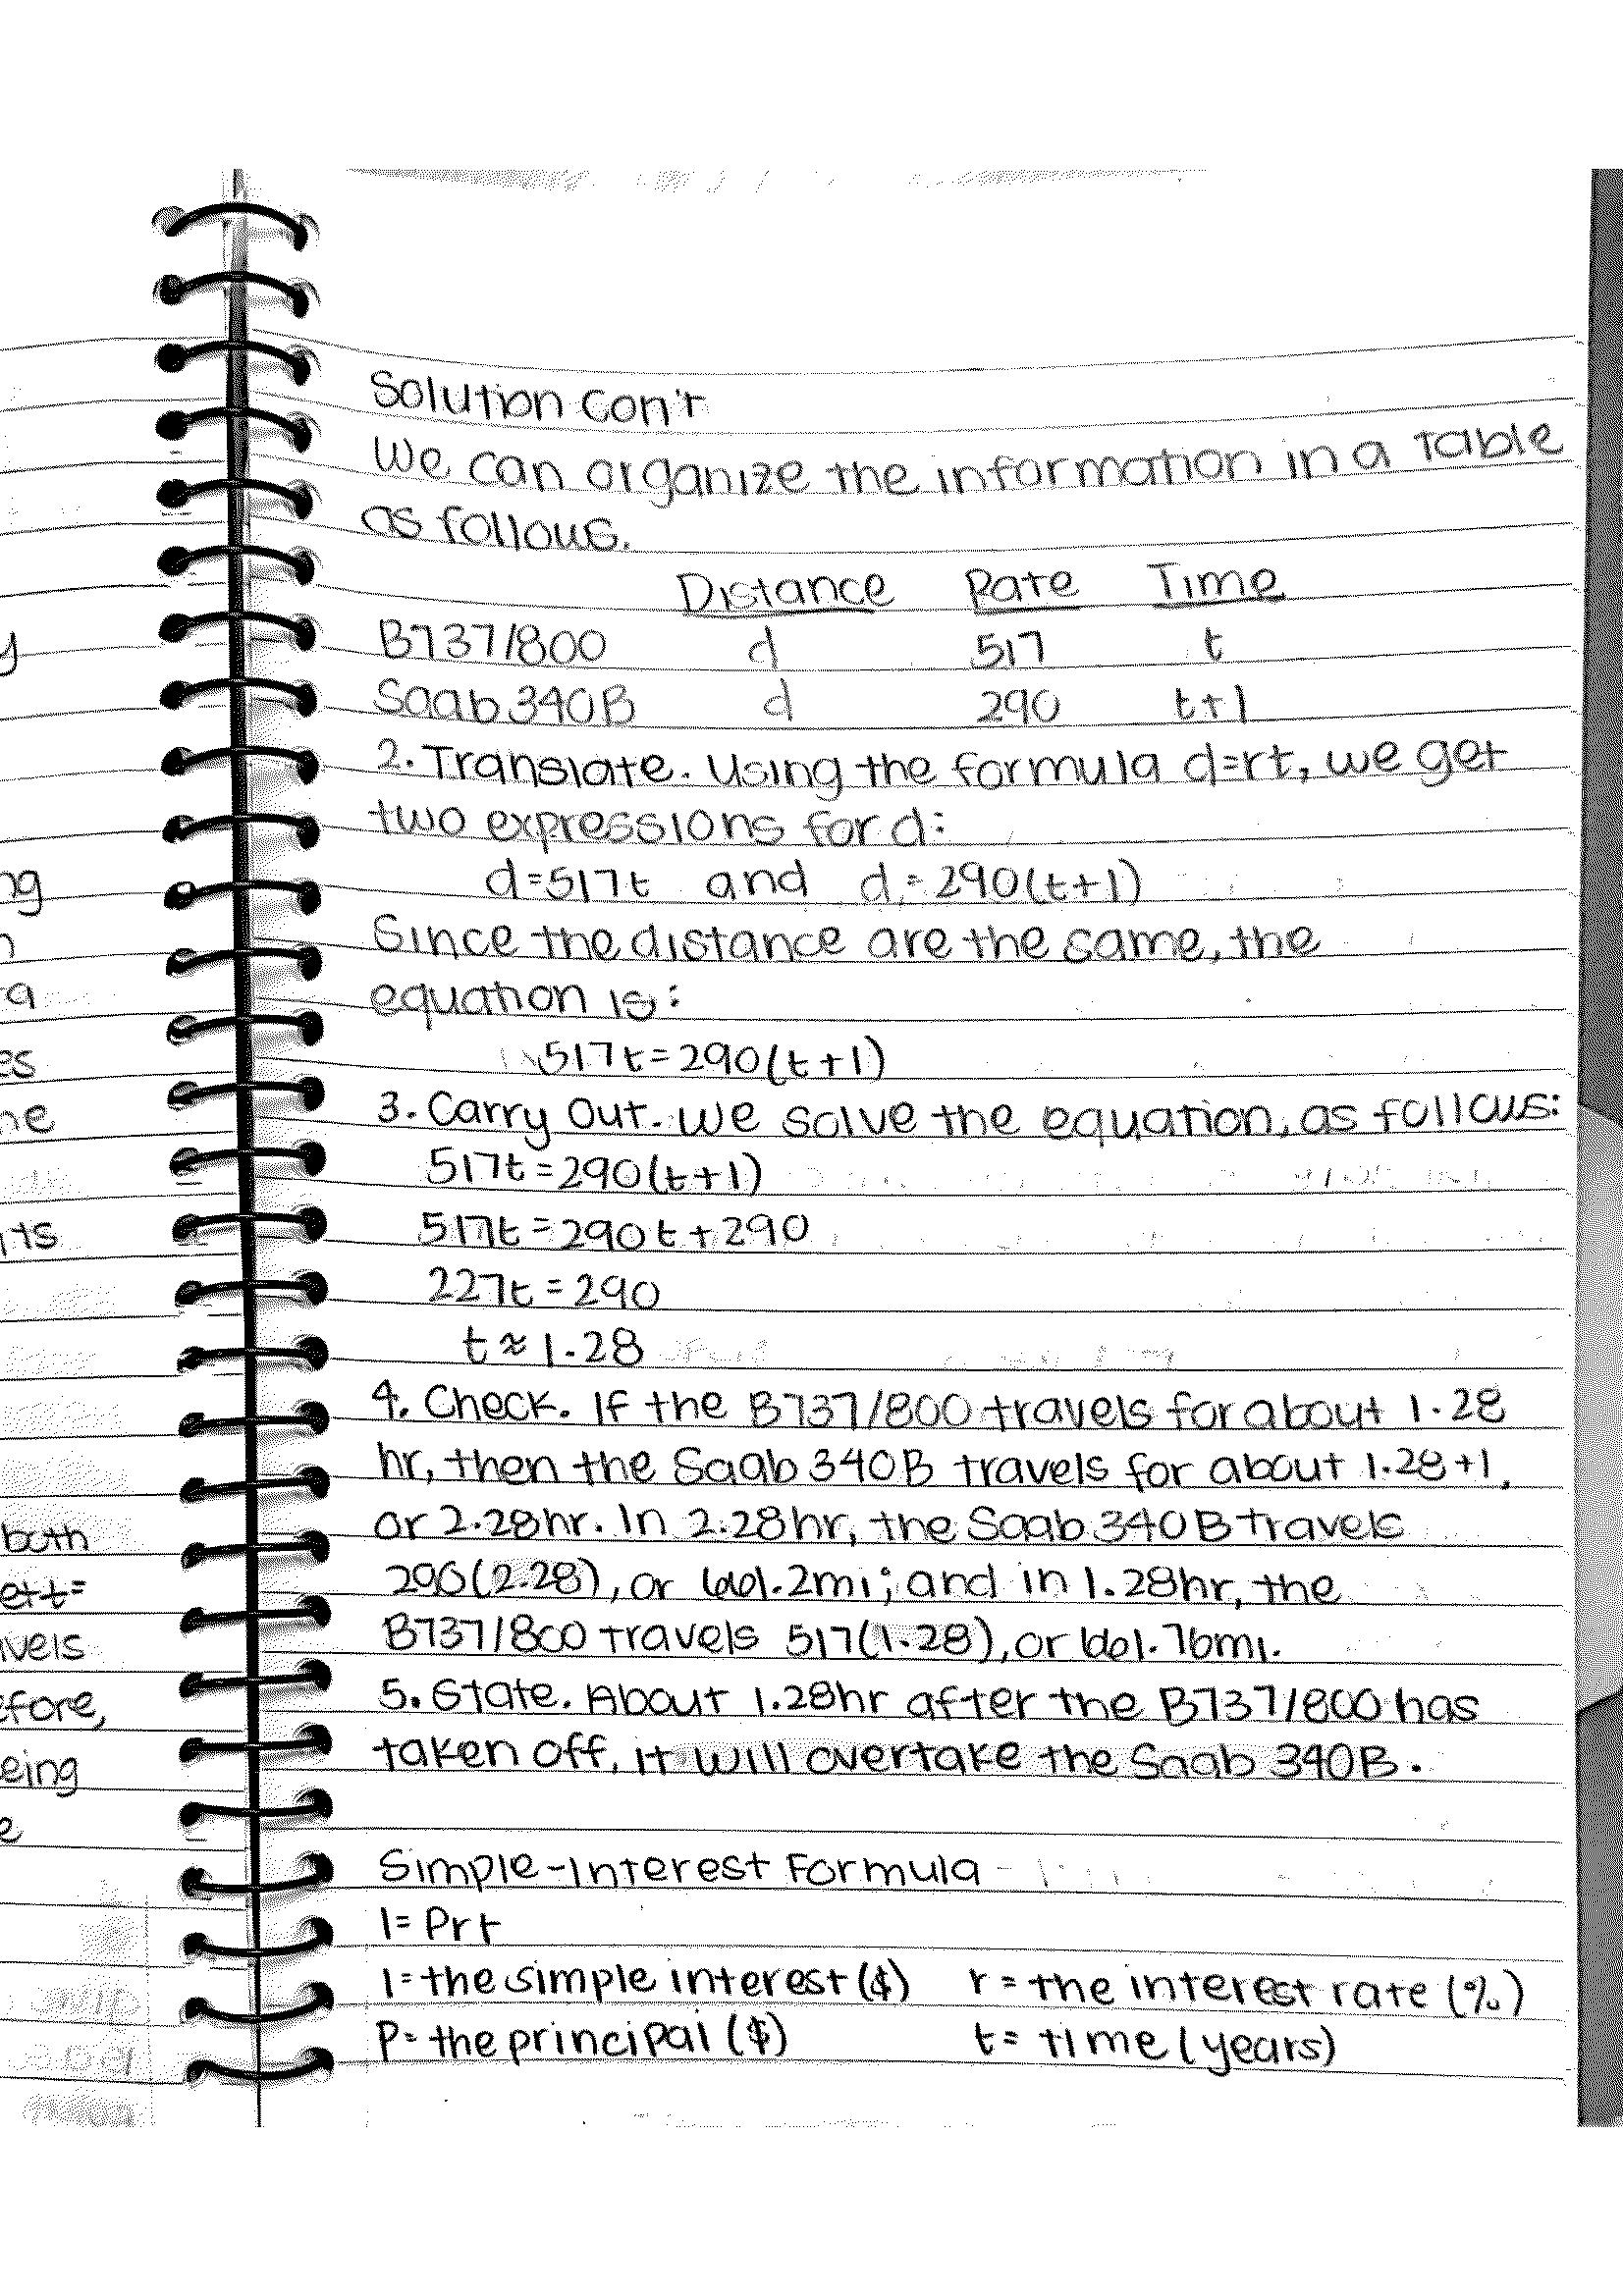 Solution Con't
We can organize the information in a table
as follows.
Distance Rate Time
B737/800 d 517 t
Saab 340B d 290 t+1
2. Translate. Using the formula d=rt, we get
two expressions for d:
d=517t and d=290(t+1)
Since the distance are the same, the
equation is:
517t=290(t+1)
3. Carry Out. We solve the equation, as follows:
517t=290(t+1)
517t=290t+290
227t=290
t≈1.28
4. Check. If the B737/800 travels for about 1.28
hr, then the Saab 340B travels for about 1.28+1,
or 2.28hr. In 2.28hr, the Saab 340B travels
290(2.28), or 661.2mi; and in 1.28hr, the
B737/800 travels 517(1.28), or 661.76mi.
5. State. About 1.28hr after the B737/800 has
taken off, it will overtake the Saab 340B.
Simple-Interest Formula
I=Prt
I=the simple interest($) r=the interest rate (%)
P=the principal($) t=time(years)
y
ng
n
ra
es
ne
its
both
et t=
avels
efore,
eing
e